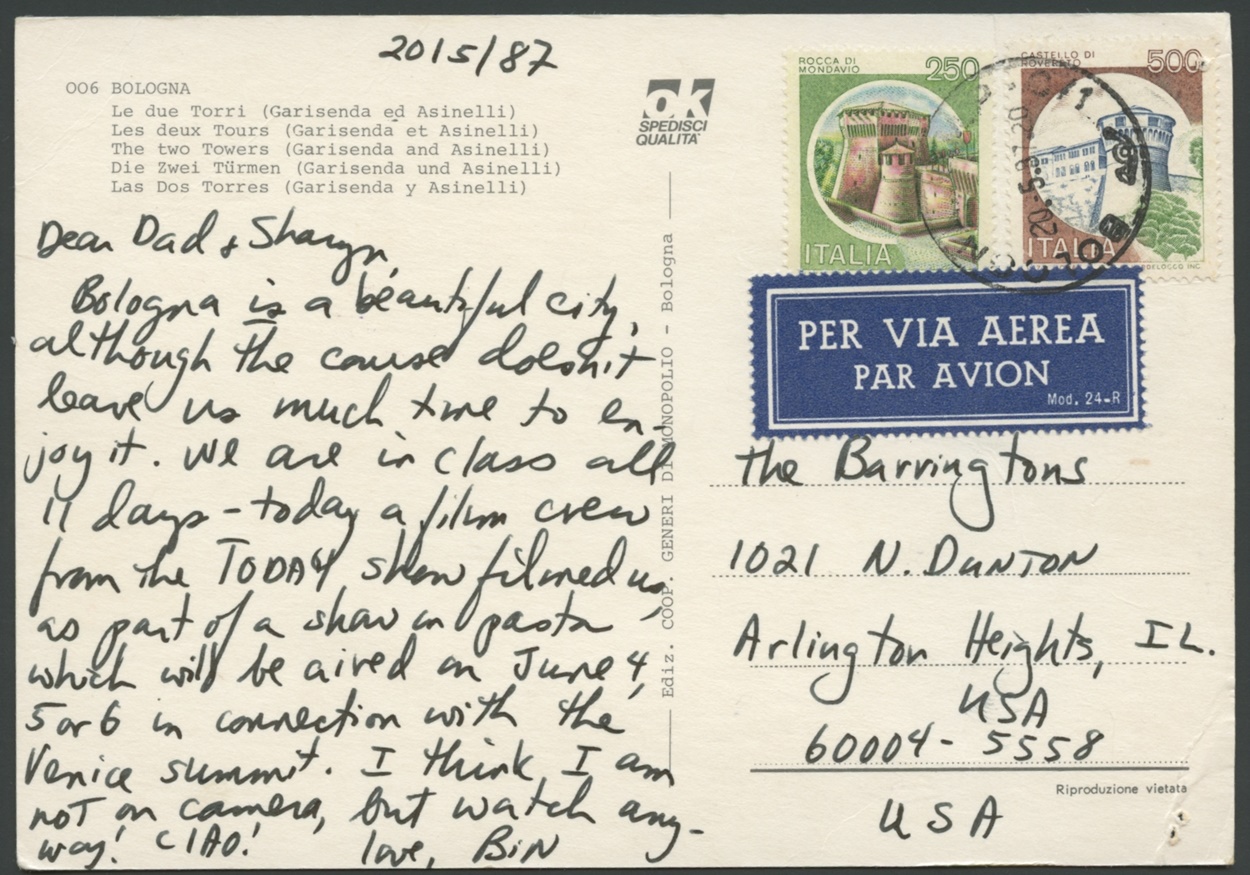 2015/87
006 BOLOGNA
Le due Torri (Garisenda ed Asinelli)
Les deux Tours (Garisenda et Asinelli)
The two Towers (Garisenda and Asinelli)
Die Zwei Türmen (Garisenda und Asinelli)
Las Dos Torres (Garisenda y Asinelli)
OK
SPEDISCI
QUALITA'
ROCCA DI
MONDAVIO
250
ITALIA
CASTELLO DI
ROVERETO
500
ITALIA
PER VIA AEREA
PAR AVION
Mod. 24-R
Dear Dad & Sharyn,
Bologna is a beautiful city,
although the course doesn't
leave us much time to en-
joy it. We are in class all
11 days - today a film crew
from the TODAY show filmed us,
as part of a show on pasta
which will be aired on June 4,
5 or 6 in connection with the
Venice summit. I think I am
not on camera, but watch any-
way! CIAO!
love, BiN
Ediz. COOP. GENERI DI MONOPOLIO - Bologna
the Barringtons
1021 N. DUNTON
Arlington Heights, IL.
USA
60004-5558
Riproduzione vietata
USA